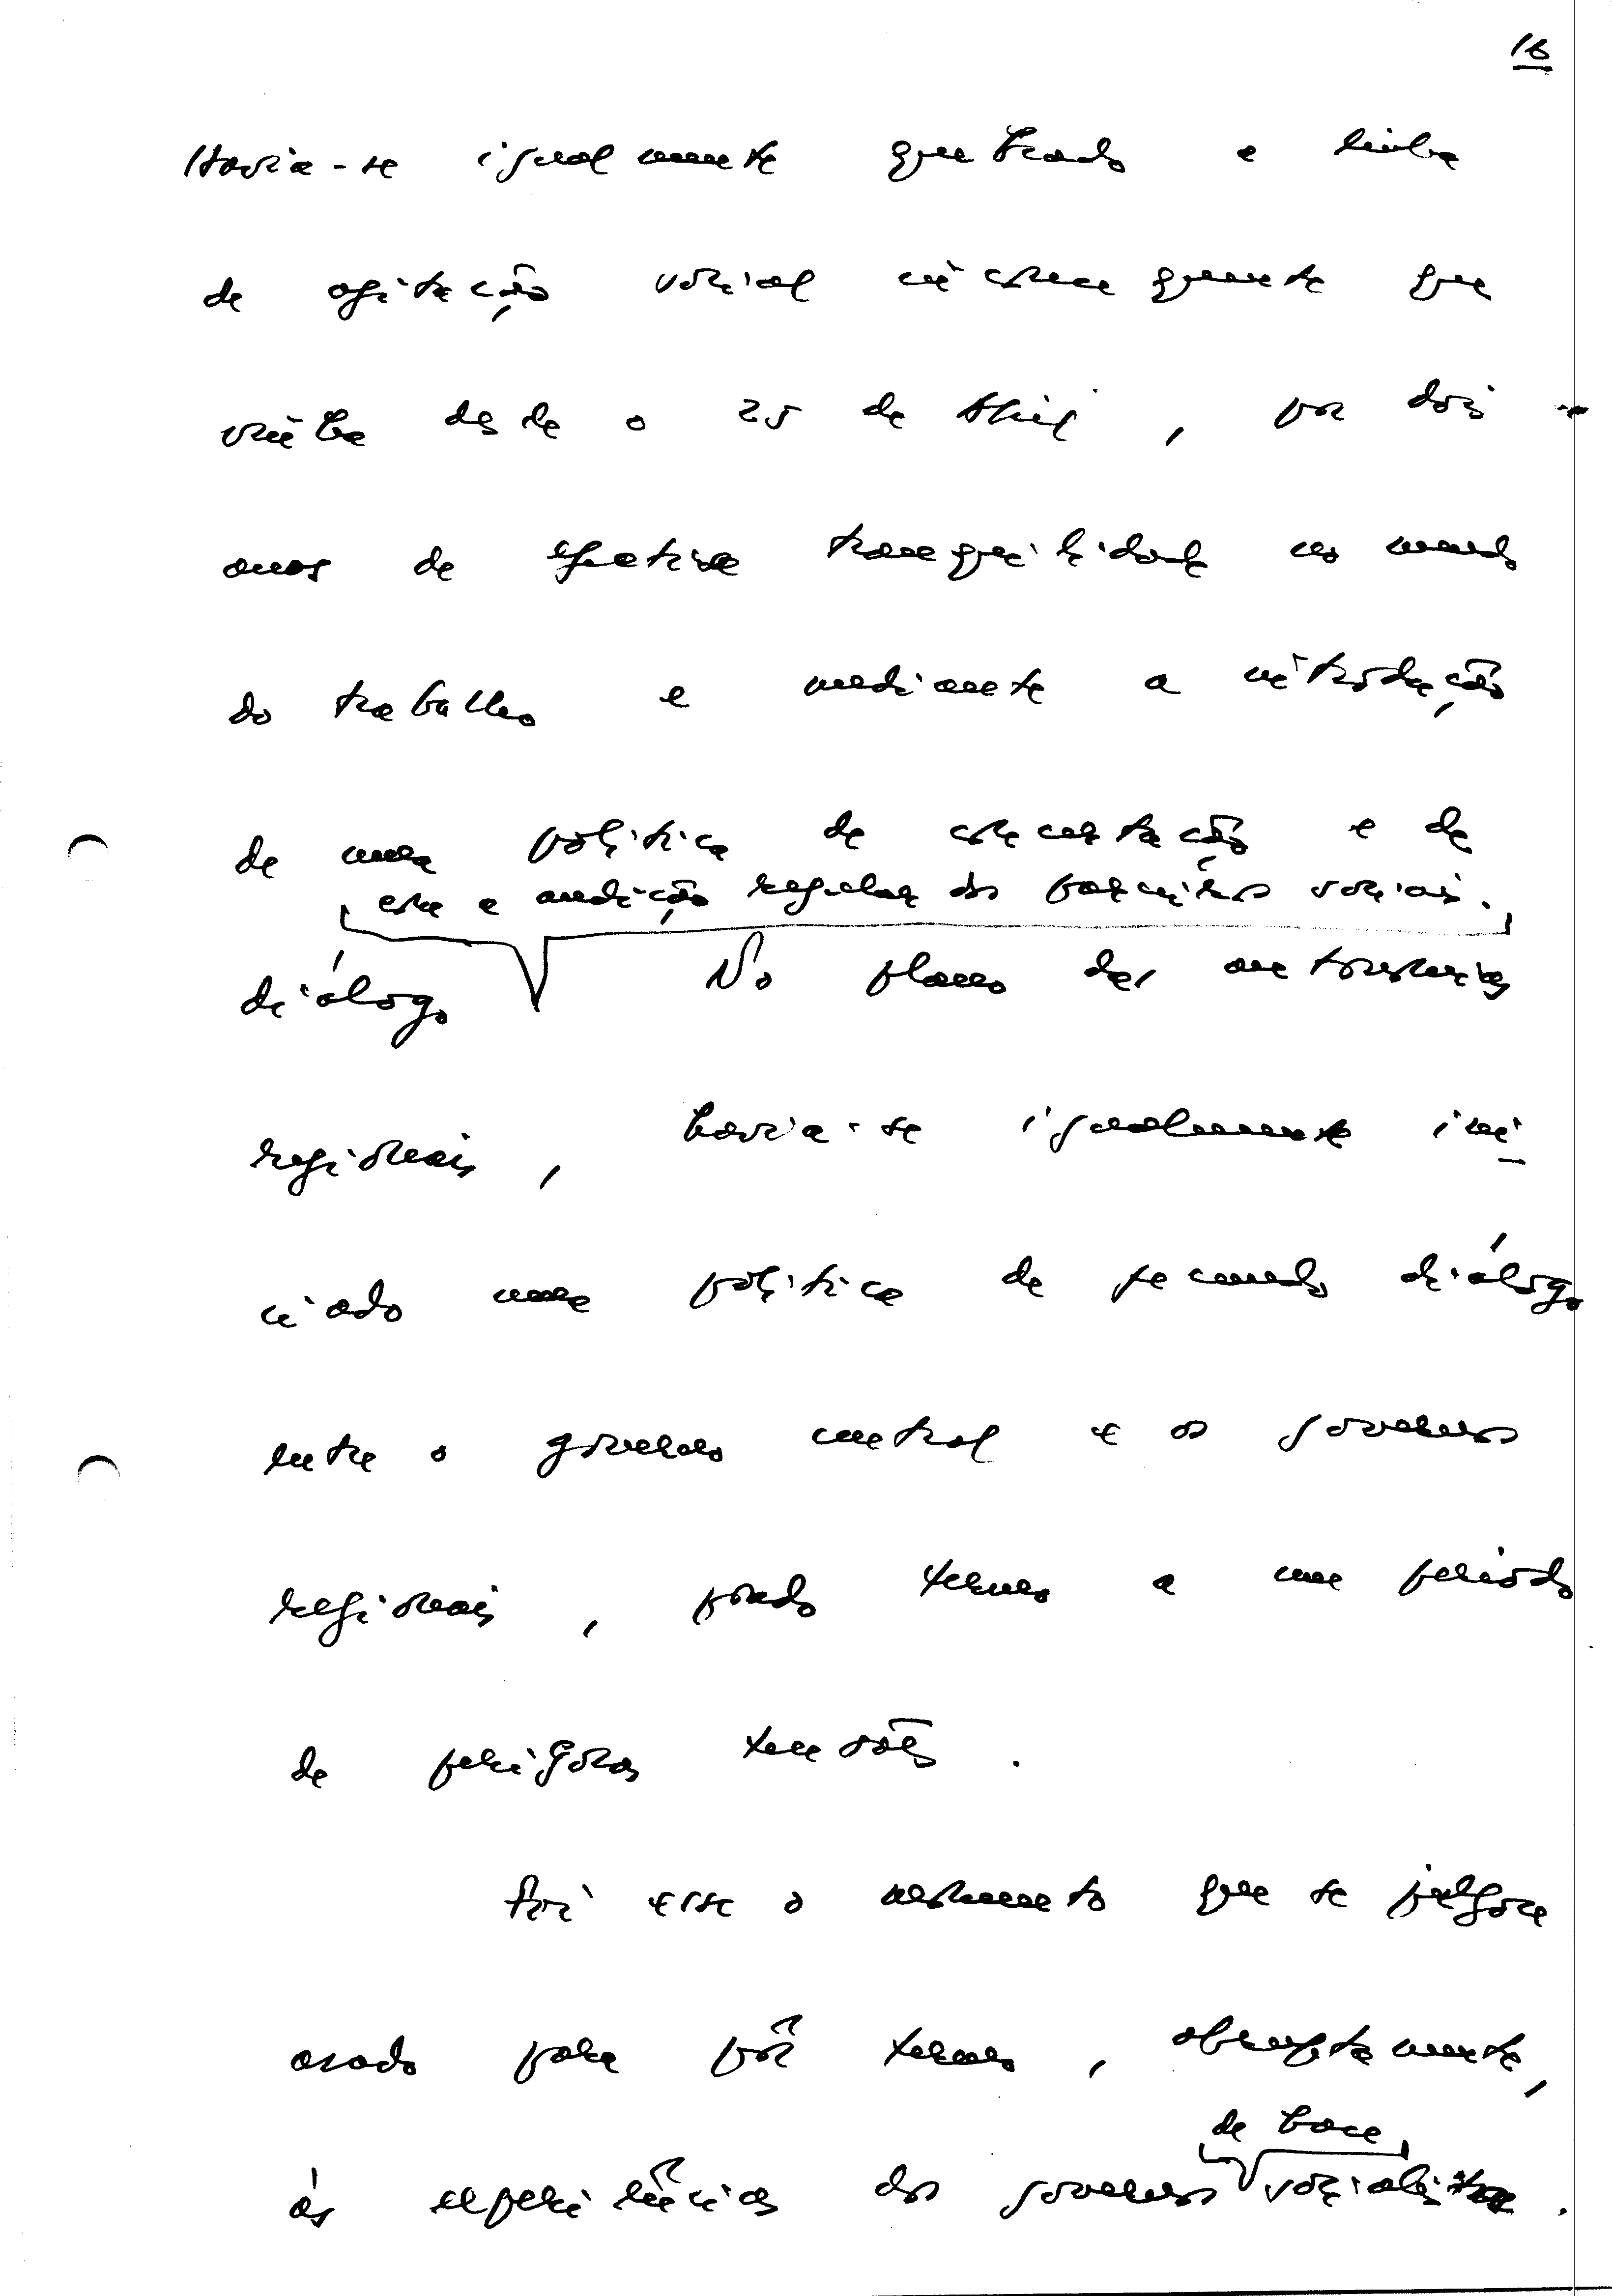 16
Havia-se igualmente quebrado a linha
de agitação social inconsequente que
vinha desde o 25 de Abril, por dois
anos de efectiva tranquilidade no mundo
do trabalho e mediante a introdução
de uma política de concertação e de
com a audição regular dos parceiros sociais.
diálogo No plano das autonomias
regionais, havia-se igualmente ini
ciado uma política de fecundo diálogo
entre o governo central e os governos
regionais, pondo termo a um período
de perigosas tensões.
Foi esse o momento que se julgou
asado para pôr termo, abruptamente,
de base
às experiências dos governos socialista.